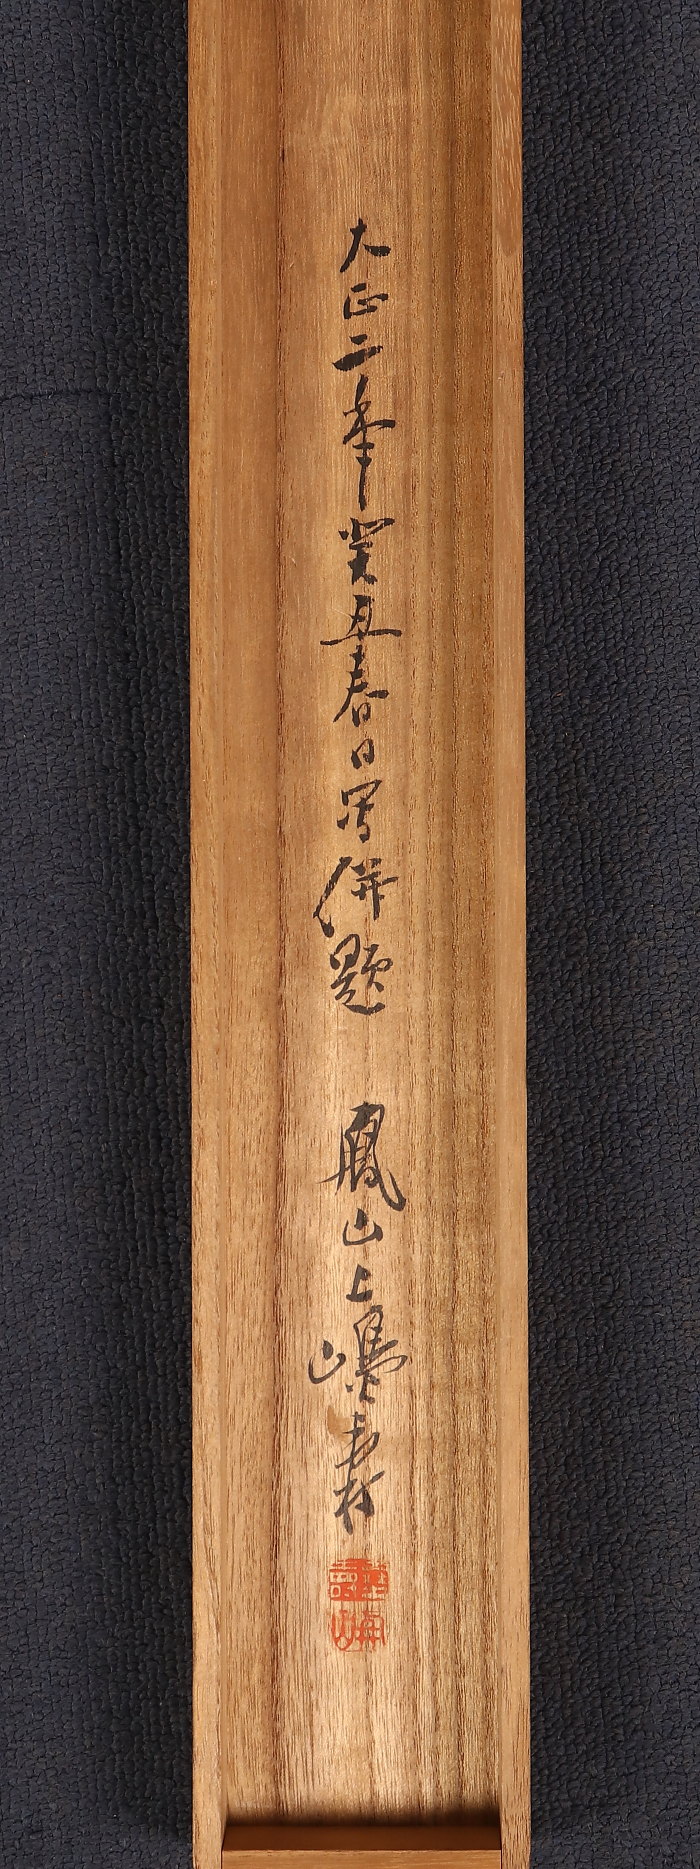 大正二年癸丑春日写併題 鳳山上嶋寿